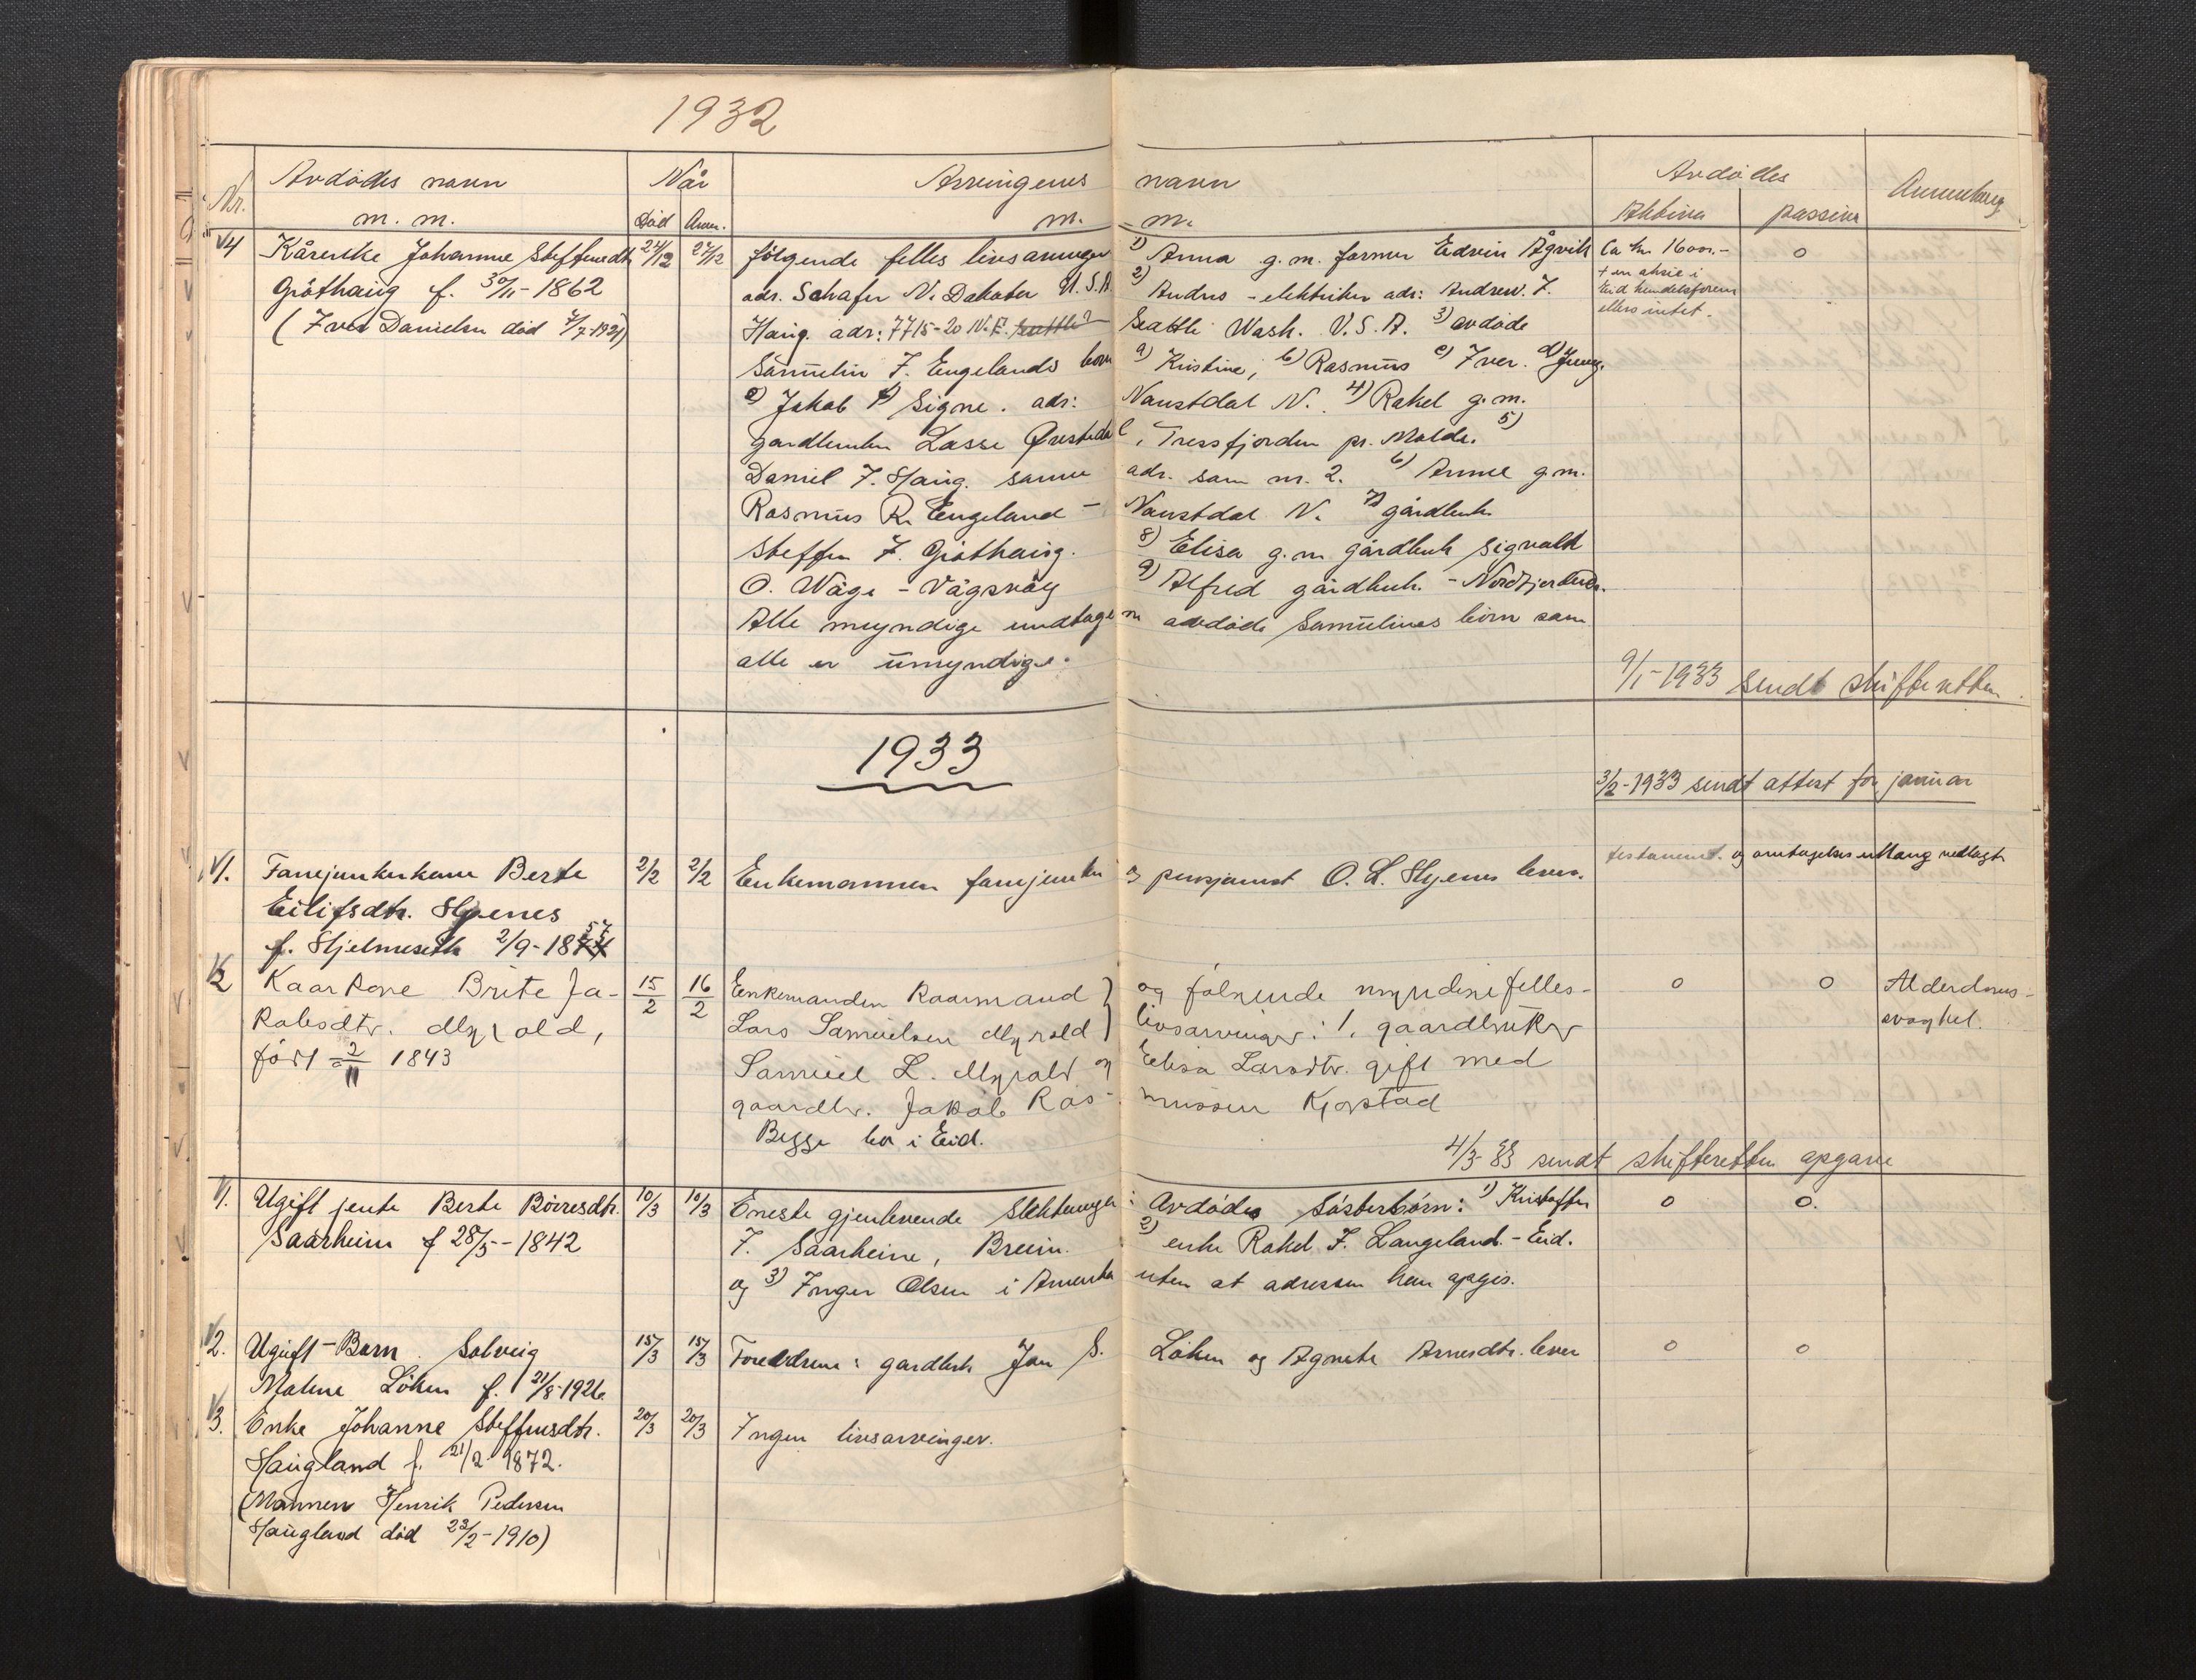 1932
Nr. Avdødes navn Når Arvingenes navn Avdødes
m. m. Død Anm. m. m. Aktiva passiva
4 Kårenke Johanne Steffensdtr. 24/12 27/12 følgende felles livsarvinger 1) Anna g.m. farmer Edvin Ågvik Ca kr. 1600.- 0
Gjøthaug f. 30/11-1862 adr. Schafer N. Dakota U.S.A. 2) Andrus - elektriker adr: Andrew. I. + en aksie i
Eid handelsforen
(Iver Danielsen død 4/7-1921) Haug. adr: 7715-20 N.E. Seattle Seattle Wash. U.S.A. 3) avdøde ellers intet.
Samuelin I. Engelands born a) Kristine, b) Rasmus c) Iver. d)
e) Jakob f) Signe. adr: Naustdal N. 4) Rakel g.m.
gardbruker Lasse Øvstedal, Tressfjorden pr. Molde. 5)
Daniel I. Haug. samme adr. som nr. 2. 6) Anne g.m.
Rasmus R. Engeland - Naustdal N. 7) gårdbruk.
Steffen I. Gjøthaug. 8) Elisa g.m gårdbruk Sigvald
O. Våge - Vågsvåg 9) Alfred gårdbruk. - Nordfjordeid.
Alle myndige undtagen avdøde Samuelines born som
alle er umyndige.
9/1-1933 sendt skifteretten.
1933
3/2-1933 sendt attest for januar
1. Fanejunkerkone Berte 2/2 2/2 Enkemannen fanejunker og pensjonist O. L. Hjenes lever. testament. og nedlagt
Eilifsdtr. Hjenes
f. Hjelmeseth 2/9-1857
2 Kaarkone Brite Ja- 15/2 16/2 Enkemanden Kaarmand } og følgende myndige felles- 0 0 Alderdoms-
kobsdtr. Myrold, Lars Samuelsen Myrold } livsarvinger: 1. gaardbruker svaghet.
født 2/11 1843 Samuel L. Myrold og Elisa Larsdtr. gift med
gaardbr. Jakob Ras- mussen Kjøstad
Begge bor i Eid.
4/3-33 sendt skifteretten opgave
1. Ugift jente Berte Börresdtr. 10/3 10/3 Eneste gjenlevende slektninger: Avdødes søsterbørn: 1) Kristoffer 0 0.
Saarheim f 28/5-1842 I. Saarheim, Breim. 2) enke Rakel I. Langeland - Eid.
og 3) Inger Olsen i Amerika uten at adressen kan opgis.
2. Ugift - Barn. Solveig 15/3 15/3 Foreldrene: gardbruk Jon S. Løken og Agnete Arnesdtr. lever 0 0
Malene Løken f. 21/8-1926
3. Enke Johanne Steffensdtr. 20/3 20/3 Ingen livsarvinger.
Haugland f. 21/2 1872.
(Mannen Henrik Pedersen
Haugland død 23/2-1910)